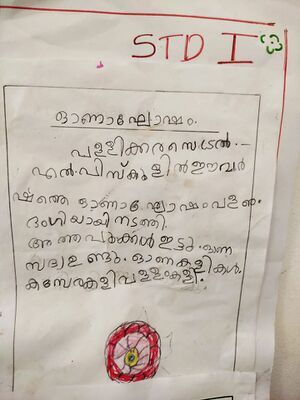 STD I
ഓണാഘോഷം.
പള്ളിക്കരസെൻട്രൽ
എൽ.പി സ്കൂളിൽ ഈ വർ
ഷത്തെ ഓണാഘോഷം
ഭംഗിയായി നടത്തി.
അത്തപൂക്കൾ ഇട്ടു. ഓണ
സദ്യ ഉണ്ടു. ഓണകളികൾ.
കസേരകളി വള്ളംകളി.